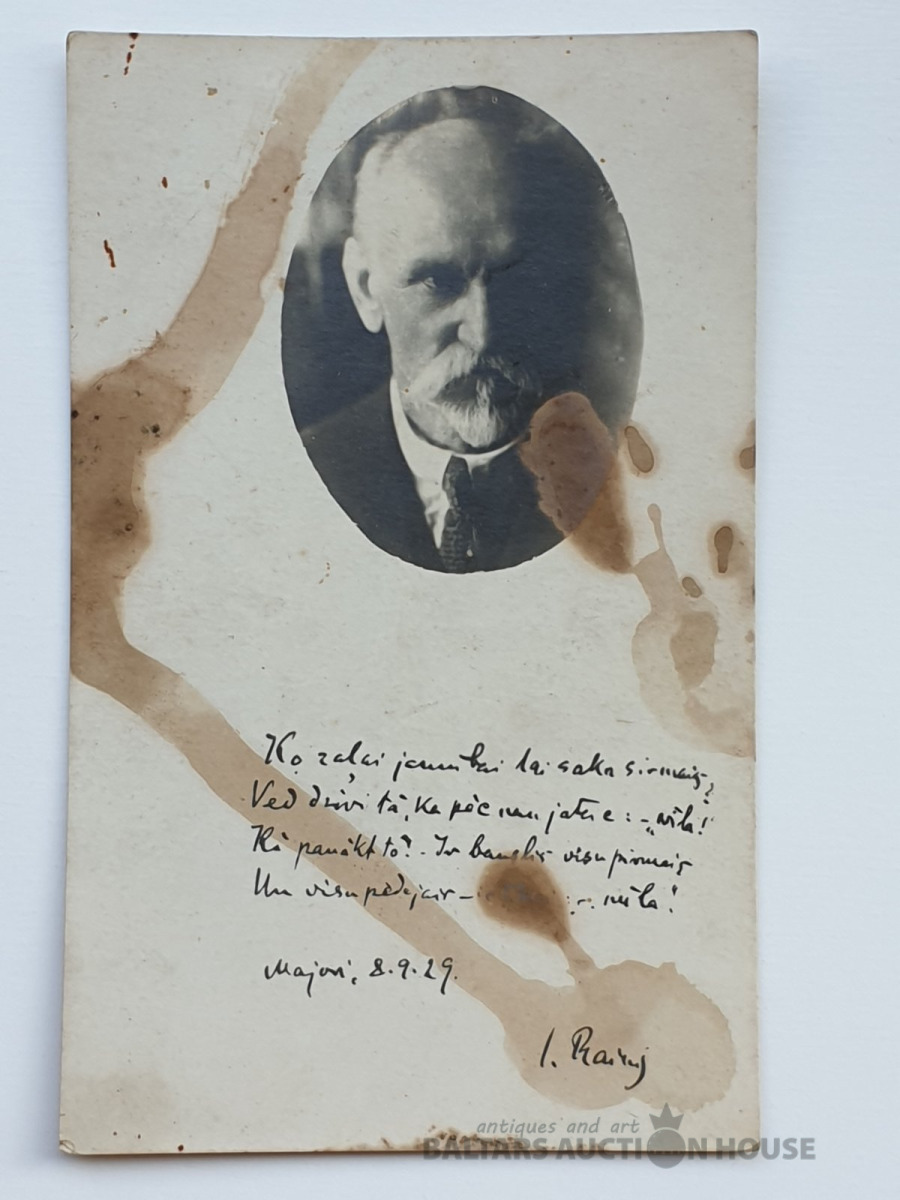 Ko zaļai jaunībai lai saka sirmais,
Ved dzīvi tā, ka pēc nav jāsauc: – „vīla!“
Kā panākt to? – Ir bauslis visu pirmais
Un visu pēdējais – mīla!
Majori, 8.9.29.
J. Rainis
antiques and art
BALTARS AUCTION HOUSE